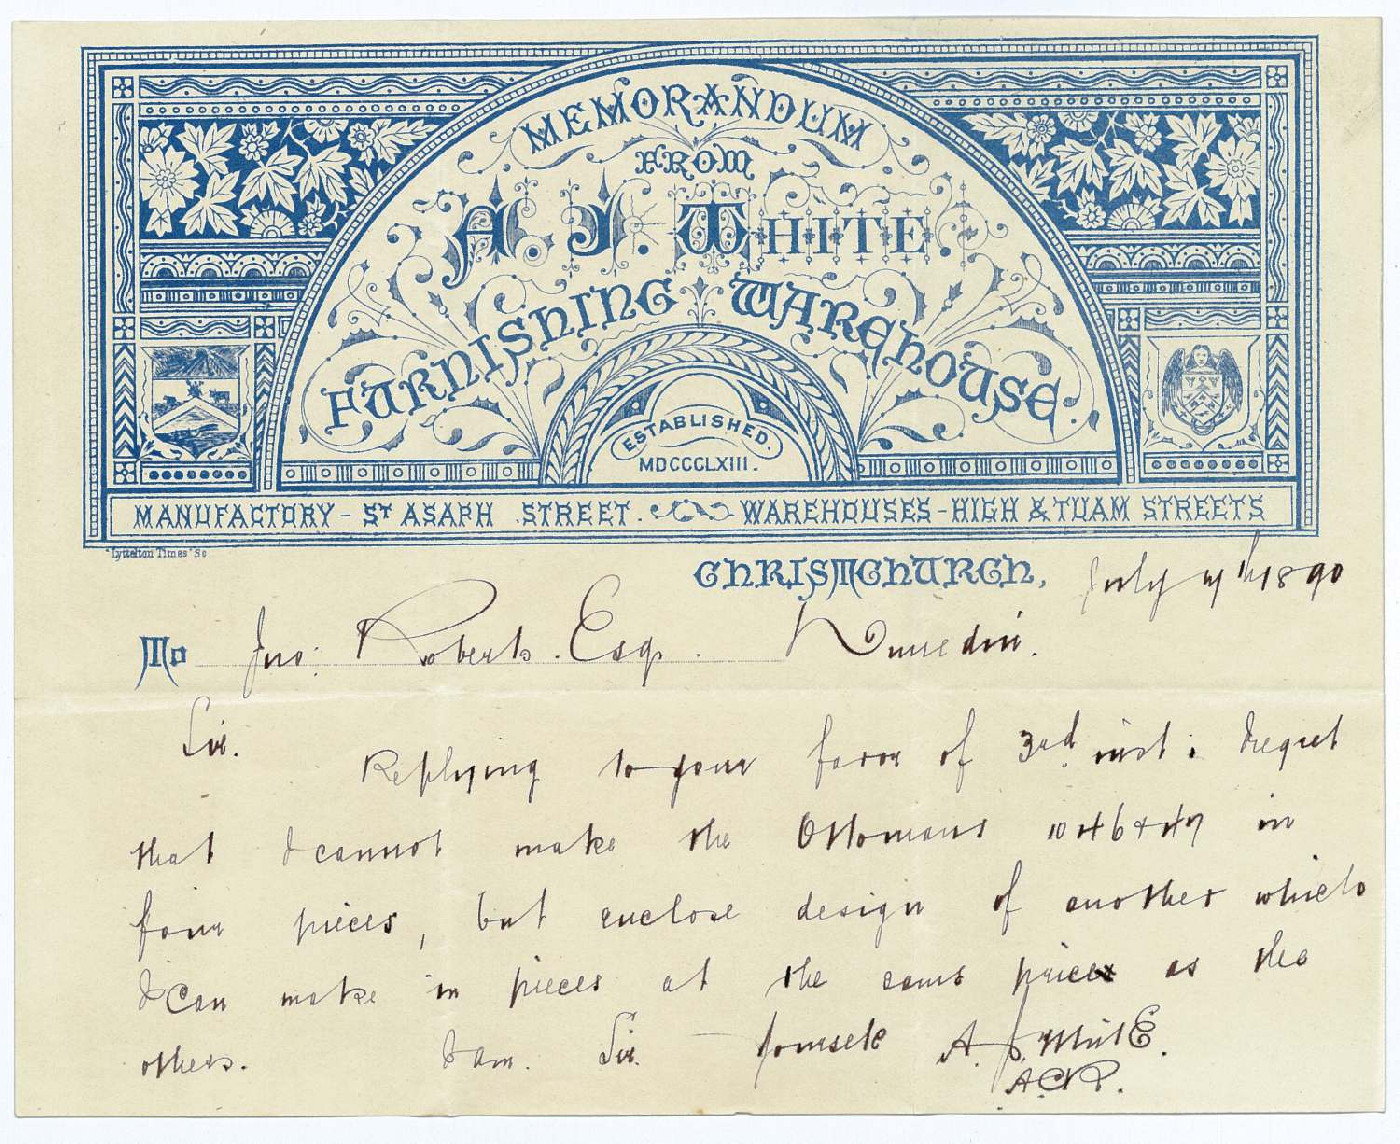 MEMORANDUM
FROM
A J WHITE
FURNISHING WAREHOUSE.
ESTABLISHED.
MDCCCLXIII.
MANUFACTORY - ST ASAPH STREET. WAREHOUSES - HIGH & TUAM STREETS
"Lyttelton Times" Co
CHRISTCHURCH, July 1890
To Jno: Roberts Esq. Dunedin.
Sir.
Replying to your favor of 3rd inst: I regret
that I cannot make the Ottomans in
four pieces, but enclose design of another which
I can make in pieces at the same price as the
others. I am. Sir. A. J. White.